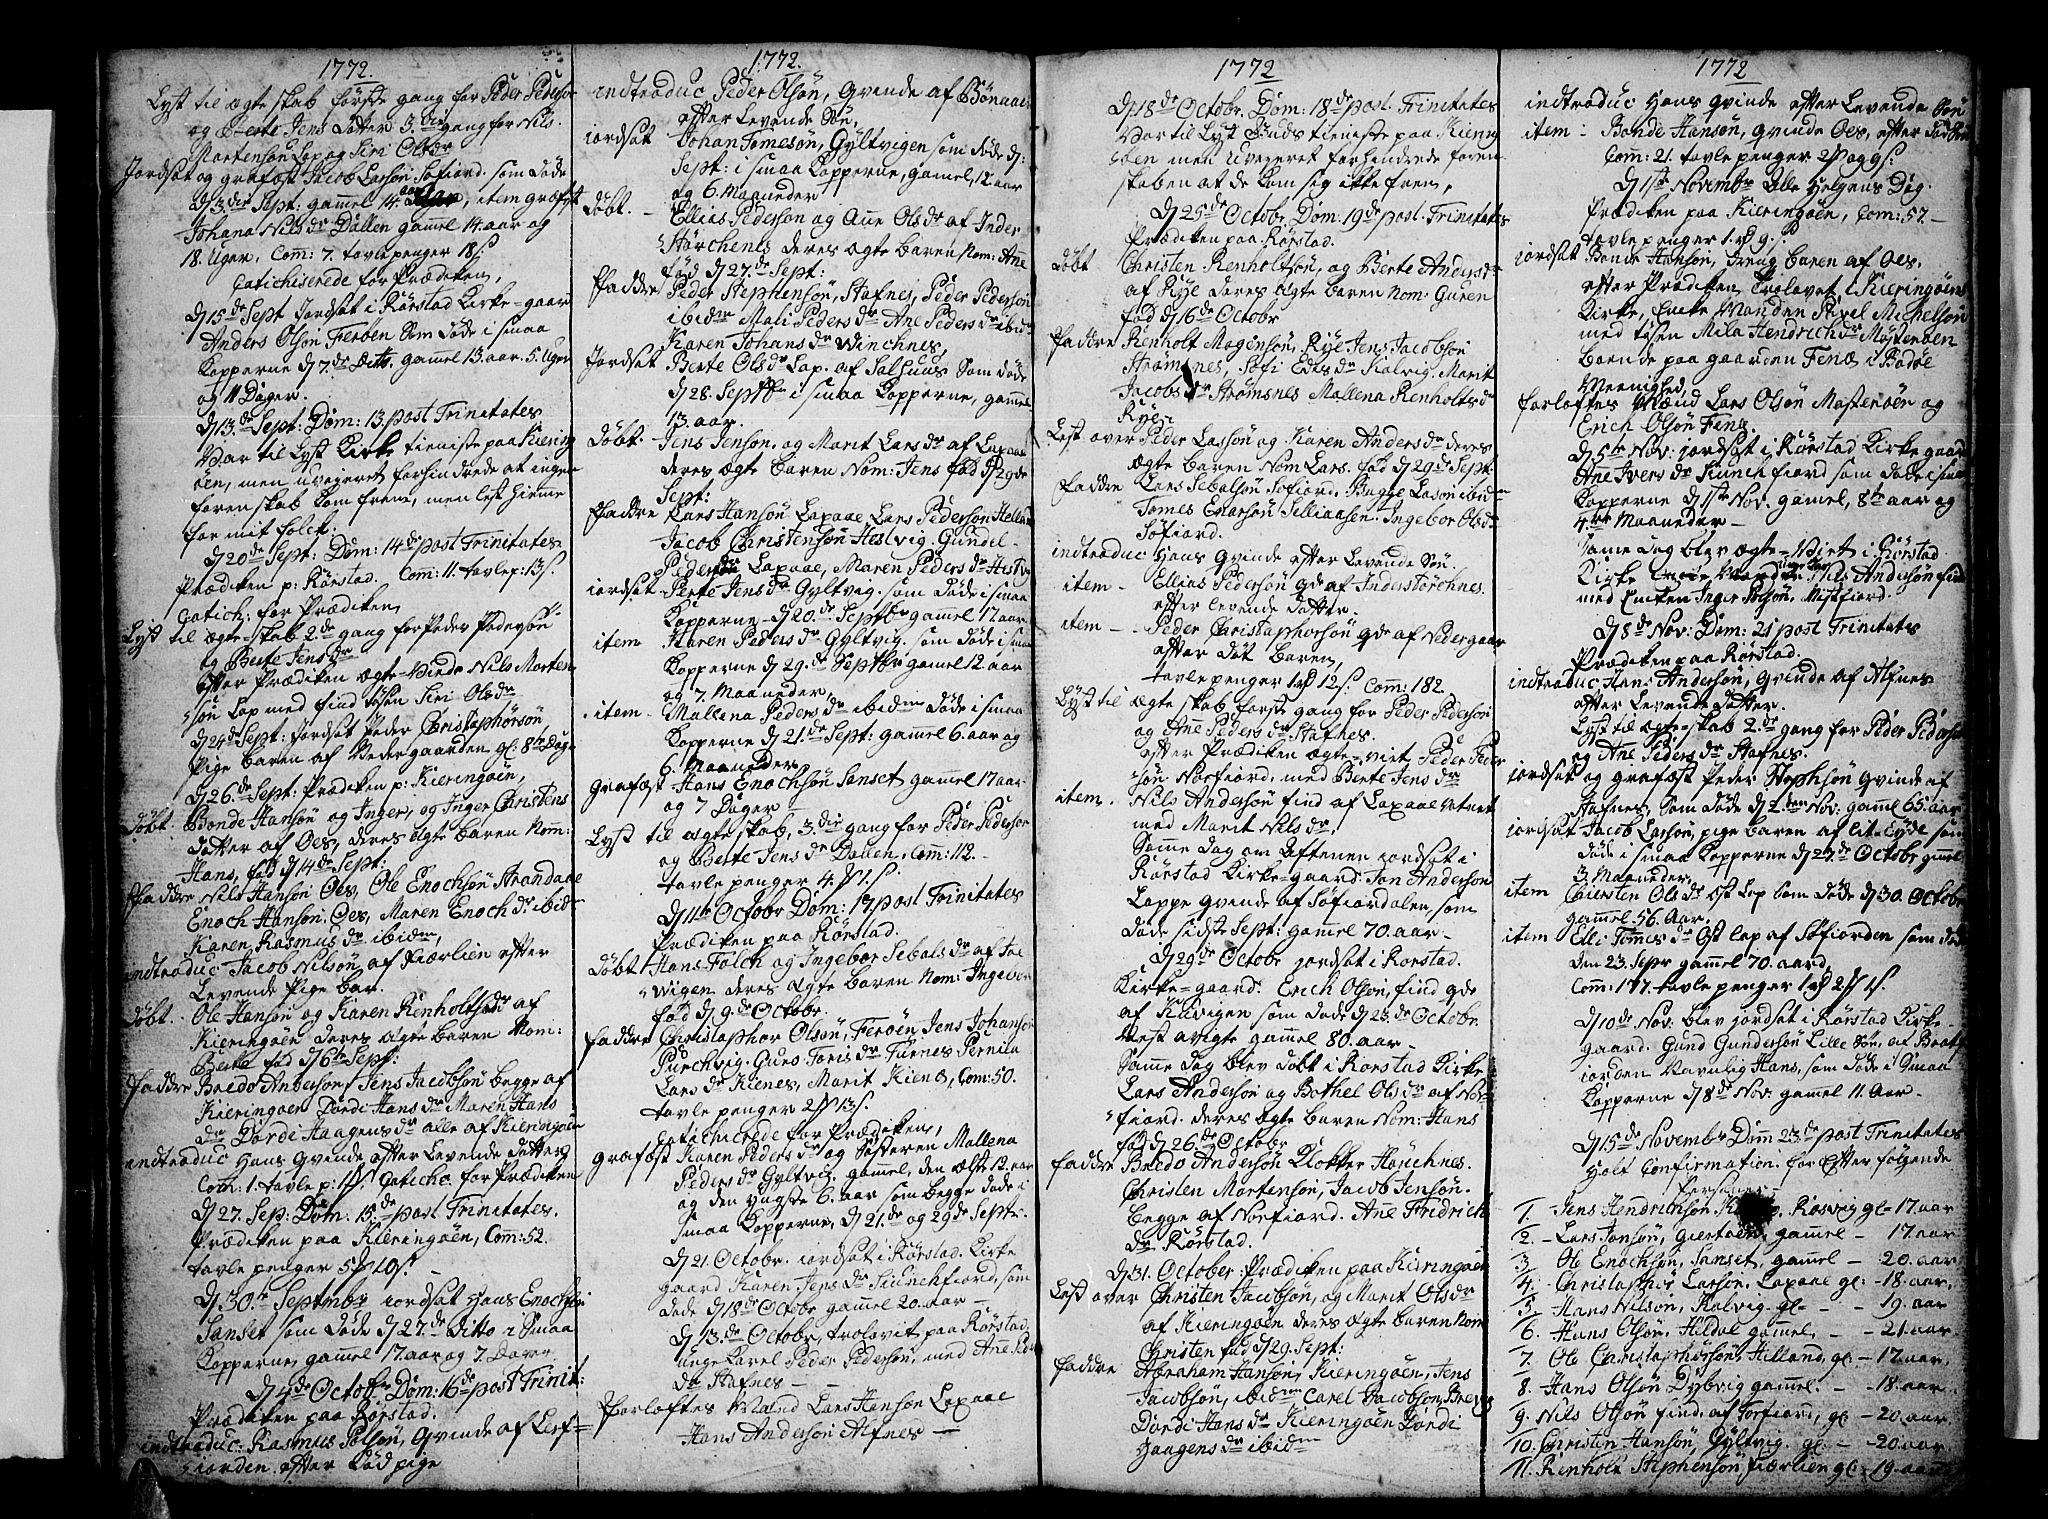 1772.
Lyst til ægte skab første gang for Peder Peders
og Berte Jens Datter 3.die gang for Nils
Mortensön Lap og Siri Olsdr
Jordsat og grafæst Jacob Larsön Söfiord. som Döde
D 3.die Sept: gamel 14. aar, item græfæst
Johana Nilsdr Dallen gamel 14. aar og
18. Uger. Com: 7. tavle penger 18 s
Catichiserede for Prædiken,
D 15de Sept Jordsat i Rörstad Kirke-gaar
Anders Olsön Feröen Som döde i smaa
Kopperne D 7.de Ditto. gamel 13. aar. 5. Uger
og 11 Dager.
D 13.de Sept: Dom: 13 post Trinitates
Var til Lyst Kirke tieniste paa Kiering
öen, men uvegeret forhindrede at ingen
foren skab Kom frem, men lest hiemme
for mit folck:
D 20.de Sept: Dom: 14.de post Trinitates
Prædiken p: Rörstad. Com: 11. tavlep: 13 s
Catich: for Prædiken,
Lyst til ægte-skab 2.de gang for Peder Pedersön
og Berte Jensdr
Efter Prædiken ægte-Viede Nils Morten
sön Lap med find tösen Siri Olsdr
D 24de Sept: Jordsat Peder Christaphersön,
Pige baren af Nedergaarden, gl: 8te Dage
D 26.de Sept: Prædiken p: Kieringöen,
Döbt. Bonde Hansön og Inger, og Inger Christens
datter af Oes, deres ægte baren Nom:
Hans, föd D 14de Sept:
Faddre Nils Hansön Oes, Ole Enochsön Strandaae
Enoch Hansön Oes, Maren Enochdr ibid
Karen Rasmusdr ibidm,
indtraduc Jacob Nilsön af Fiærlien efter
Levende Pige bar.
Döbt. Ole Hansön og Karen Renholtsdr af
Kieringöen deres ægte baren Nom:
Berte föd D 6te Sept:
Faddre Bredo Andersön, Jens Jacobsön begge af
Kieringöen Dordi Hansdr Maren Hans
dr Dordi Haagensdr alle af Kieringöen
indtraduc Hans Qvinde efter Levende Datter
Com: 1. tavle p: 1 s Catiche. for Prædiken
D 27. Sep: Dom: 15.de post Trinitates.
Prædiken paa Kieringöen, Com: 52.
tavle penger 5 10 s.
D 30.te Septmbr iordsat Hans Enochsön
Sanset som döde D 27.de Ditto i Smaa
Kopperne, gammel 17. aar og 7. Dager
D 4de Octobr Dom: 16.de post Trinit:
Prædiken paa Rörstad.
indtraduc: Rasmus Polsön, Qvinde af Leif=
iorden. efter Död pige
1772.
indtraduc Peder Olsön, Qvinde af Bönaae
efter Levende Sön,
iordsat Johan Tomesön, Gyltvigen som döde D:
Sept: i smaa Kopperne, gamel, 12 aar
og 6. Maaneder
Döbt. - Ellias Pedersön og Ane Olsdr af Inder
Störchenes deres ægte baren Nom: Ane
föd D 27.de Sept:
Faddre Peder Stephensön, Stafnes, Peder Pedersön
ibidm Mali Pedersdr Ane Pedersdr ibid
Karen Johansdr Winchnes,
Jordsat Berte Olsdr Lap. af Salhuus Som döde
D 28. Septbr i smaa Kopperne, gammel
13. aar.
Döbt. Jens Jensön. og Marit Larsdr af Laxaae
deres ægte baren Nom: Jens föd D 29de
Sept:
Faddre Lars Hansön Laxaae Lars Pedersön Helland
Jacob Christensön Hestvig. Gundel
Pedersdr Laxaae, Maren Pedersdr Hestv
iordsat Berte Jensdr Gyltvig. som döde i smaa
Kopperne - D 20.de Septbr gammel 17 aar
item Karen Pedersdr Gyltvig. som döde i smaa
Kopperne D 29.de Septbr gammel 12. aar
og 7. Maaneder,
item - Mallena Pedersdr ibidm döde i smaa
Kopperne D 21.de Sept: gammel 6. aar og
6. Maaneder
grafæst Hans Enochsön Sanset gammel 17 aar
og 7 Dager -
Lyst til ægte skab, 3.die gang for Peder Pedersön
og Berte Jensdr Dallen. Com: 112.
tavle penger 4. 1. s.
D 11te Octobr Dom: 17 post Trinitates
Prædiken paa Rörstad.
Döbt Hans Falch og Ingebor Sebalsdr af Toe
wigen deres ægte baren Nom: Ingebor
föd D 9.de Octobr.
Faddre Christapher Olsön, Feröen Jens Johansön
Purchvig. Gures Torisdr Furnes Pernila
Larsdr Kienes, Marit Kienes, Com: 50.
tavle penger 2 13 s.
Catichicrede for Prædeken,
grafæst Karen Pedersdr og Sösteren Mallena
Pedersdr Gyltvig. gammel, den ælste 12. aar
og den yngste 6. aar som begge döde i
smaa Kopperne, D 21.de og 29de Sept:
D 21 Octobr. iordsat i Rörstad Kirke
gaard Karen Jensdr Siunchfiord, som
döde D 18de Octobr gammel 20. aar -
D 13.de Octobr, trolovit paa Rörstad,
unge Karel Peder Pedersön, med Ane Peder
dr Stafnes -
Forloftes Mænd Lars Hansön Laxaae
Hans Andersön Alfnes -
1772
D 18de Octobr. Dom: 18de post Trinitates
Var til Lyst Guds tieneste paa Kiering
öen men uvegeret forhindrede foren
skaben at de kom sig ikke frem,
D 25de Octobr Dom: 19de post. Trinitates
Prædiken paa Rörstad.
Döbt Christen Renholtsön, og Berte Andersdr
af Rye deres ægte baren Nom: Guren
föd D 16de Octobr
Faddre Renholt Magensön, Rye Jens Jacobsön
Strömsnes, Sofi Edisdr Kalvig. Marit
Jacobsdr Strömsnes Mallena Renholtsdr
Rye.
Lest over Peder Lassön og Karen Andersdr deres
ægte baren Nom Lars. föd D 29de Sept:
Faddre Lars Sebalsön Söfiord. Bugge Lasön ibidm
Tomes Enersön Selliaasen. Ingebor Olsdr
Söfiord.
indtraduc Hans Qvinde efter Levende Sön.
item - Ellias Pedersön qde af Inderstörchnes.
efter levende datter.
item - Peder Christaphorsön qde af Nedergaar
efter Döt baren,
tavlepenger 1 12 s. Com: 182.
Lyst til ægte skab forste gang for Peder Pedersön
og Ane Pedersdr Stafnes.
efter Prædiken ægte-viet, Peder Peder
sön Norfiord, med Berte Jensdr
item. Nils Andersön find af Laxaae Vatnet
med Marit Nilsdr,
Samme Dag om Aftenen iordsat i
Rörstad Kirke-gaard. Jon Andersön
Lappe Qvinde af Söfiordalen, som
döde sidste Sept: gammel 70. aar -
D 29de Octobr jordsat i Rorstad.
Kirke-gaard. Erich Olsön, find qde
af Kavigen som döde D 23.de Octobr.
Nest avigte gammel 80. aar -
Samme Dag blev döbt i Rörstad Kirke
Lars Andersön og Bothel Olsdr af Nor
fiord. deres ægte baren Nom: Hans
föd D 26.de Octobr
Faddre Bredo Andersön Klokker Hörchnes.
Christen Mortensön, Jacob Jensön.
begge af Norfiord. Ane Fridrich
dr Rörstad.
D 31. October: Prædiken paa Kieringöen
Lest over Christen Jacobsön, og Marit Olsdr
af Kieringöen deres ægte baren Nom
Christen föd D 29. Sept:
Faddre Abraham Hansön, Kieringöen, Jens
Jacobsön, ibidm Carel Jacobsön Brevig
Dordi Hansdr Kieringöen Dordi
Haagensdr ibidm
1772
indtraduc Hans Qvinde efter Levende Sön
item - Bonde Hansön, Qvinde Oes, efter död Sön
Com: 21. tavle penger 2 og 9 s:
D 1ste Novembr Alle Helgens Dag.
Prædiken paa Kieringöen, Com: 57. -
tavle penger 1. 9. s
jordsat Bonde Hansön, dreng baren af Oes,
efter Prædiken trolovet i Kieringöens
Kirke, Enke Manden Pavel Michelsön
med tösen Mila Hendrichdr Mastenöen
barende paa gaarden Fenæs i Bodöe
Meenighed,
Forloftes Mænd Lars Olsön Mastenöen og
Erich Olsön Fenæs.
D 5te Nov: iordsat i Rörstad Kirke gaard
Ane Iversdr Siunchfiord som döde i smaa
Kopperne D 1ste Nov. gamel, 8te aar og
4.re Maaneder -
Same dag blev ægte-Viet i Rörstad
Kirke Nils Andersön find
med Enken Inger Mistfiord.
D 8de Nov: Dom: 21 post Trinitates
Prædiken paa Rörstad.
indtraduc Hans Andersön, Qvinde af Alfnes
efter Levende datter.
Lyst til ægte-skab 2.de gang for Peder Pedersön
og Ane Pedersdr Stafnes.
jordsat og grafæst Peder Stephsön Qvinde af
Stafnes, Som döde D 2.den Nov: gamel 65. aar
jordsat Jacob Larsön, pige baren af lit-Eyde som
döde i smaa Kopperne D 27.de Octobr gamel
3. Maaneder,
item Cirsten Olsdr Ost Lap som döde D 30. Octobr
gammel 56. Aar.
item Elli Tomesdr Ost lap af Söfiorden som döde
den 23. Sepr gammel 70. aar
Com: 177. tavle penger 1 2 1 s.
D 10de Nov: blev jordsat i Rörstad Kirke-
gaard. Gund Gundersön Lille Sön, af Bratf
iorden Navnlig Hans, som döde i Smaa
Kopperne D 8de Nov: gammel 11. Aar -
D 15de Novembr Dom 23.de post Trinitates
Holt Confirmation. for Efter fölgende
Personer -
1. Jens Hendricksön Rosvig gl - 17. aar
2. - Lars Jonsön, Giertöen, gammel - 17. aar
3 Ole Enochsön, Sanset, gammel - 20. aar
4. Christapher Larsön, Laxaae gl: - 18. aar,
5. Hans Nilsön, Kalvig. gl - - - 19. aar
6. Hans Olsön, Hildal gammel, - - 21. aar
7. Ole Christaphersön, Hilland, gl: - 17. aar,
8. - Hans Olsön Dybvig gammel. - - 18. aar.
9. Nils Olsön find. af Torfiord, gl - 20. aar.
10. Christen Hansön, Gyltvig. gl: - - 20. aar.
11. Renholt Stephensön, Fiærlien gl: - 19. aar